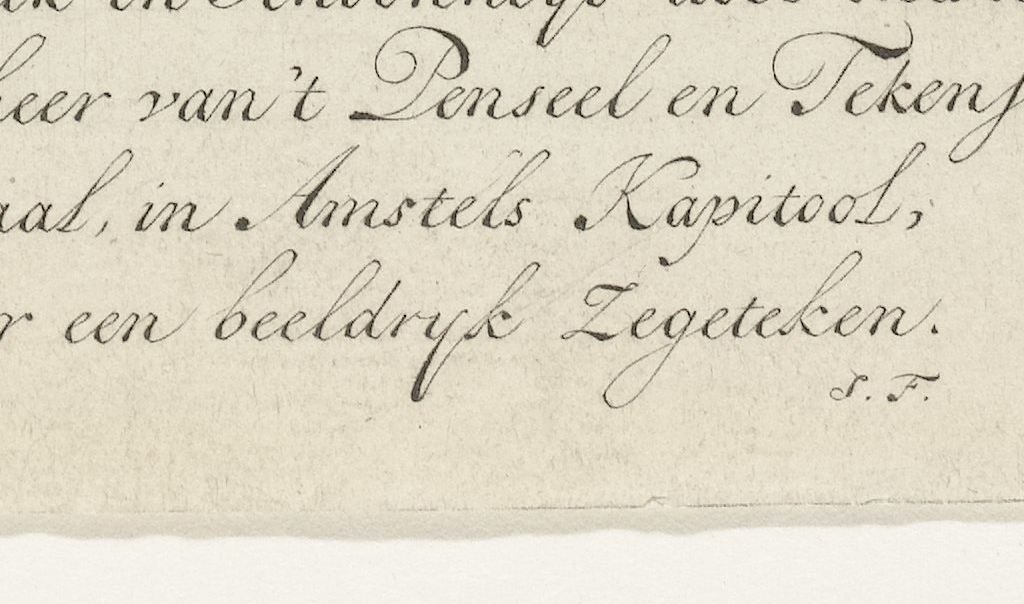 heer van't Penseel en Tekens
aal, in Amstels Kapitool,
r een beeldryk Zegeteken.
S. F.